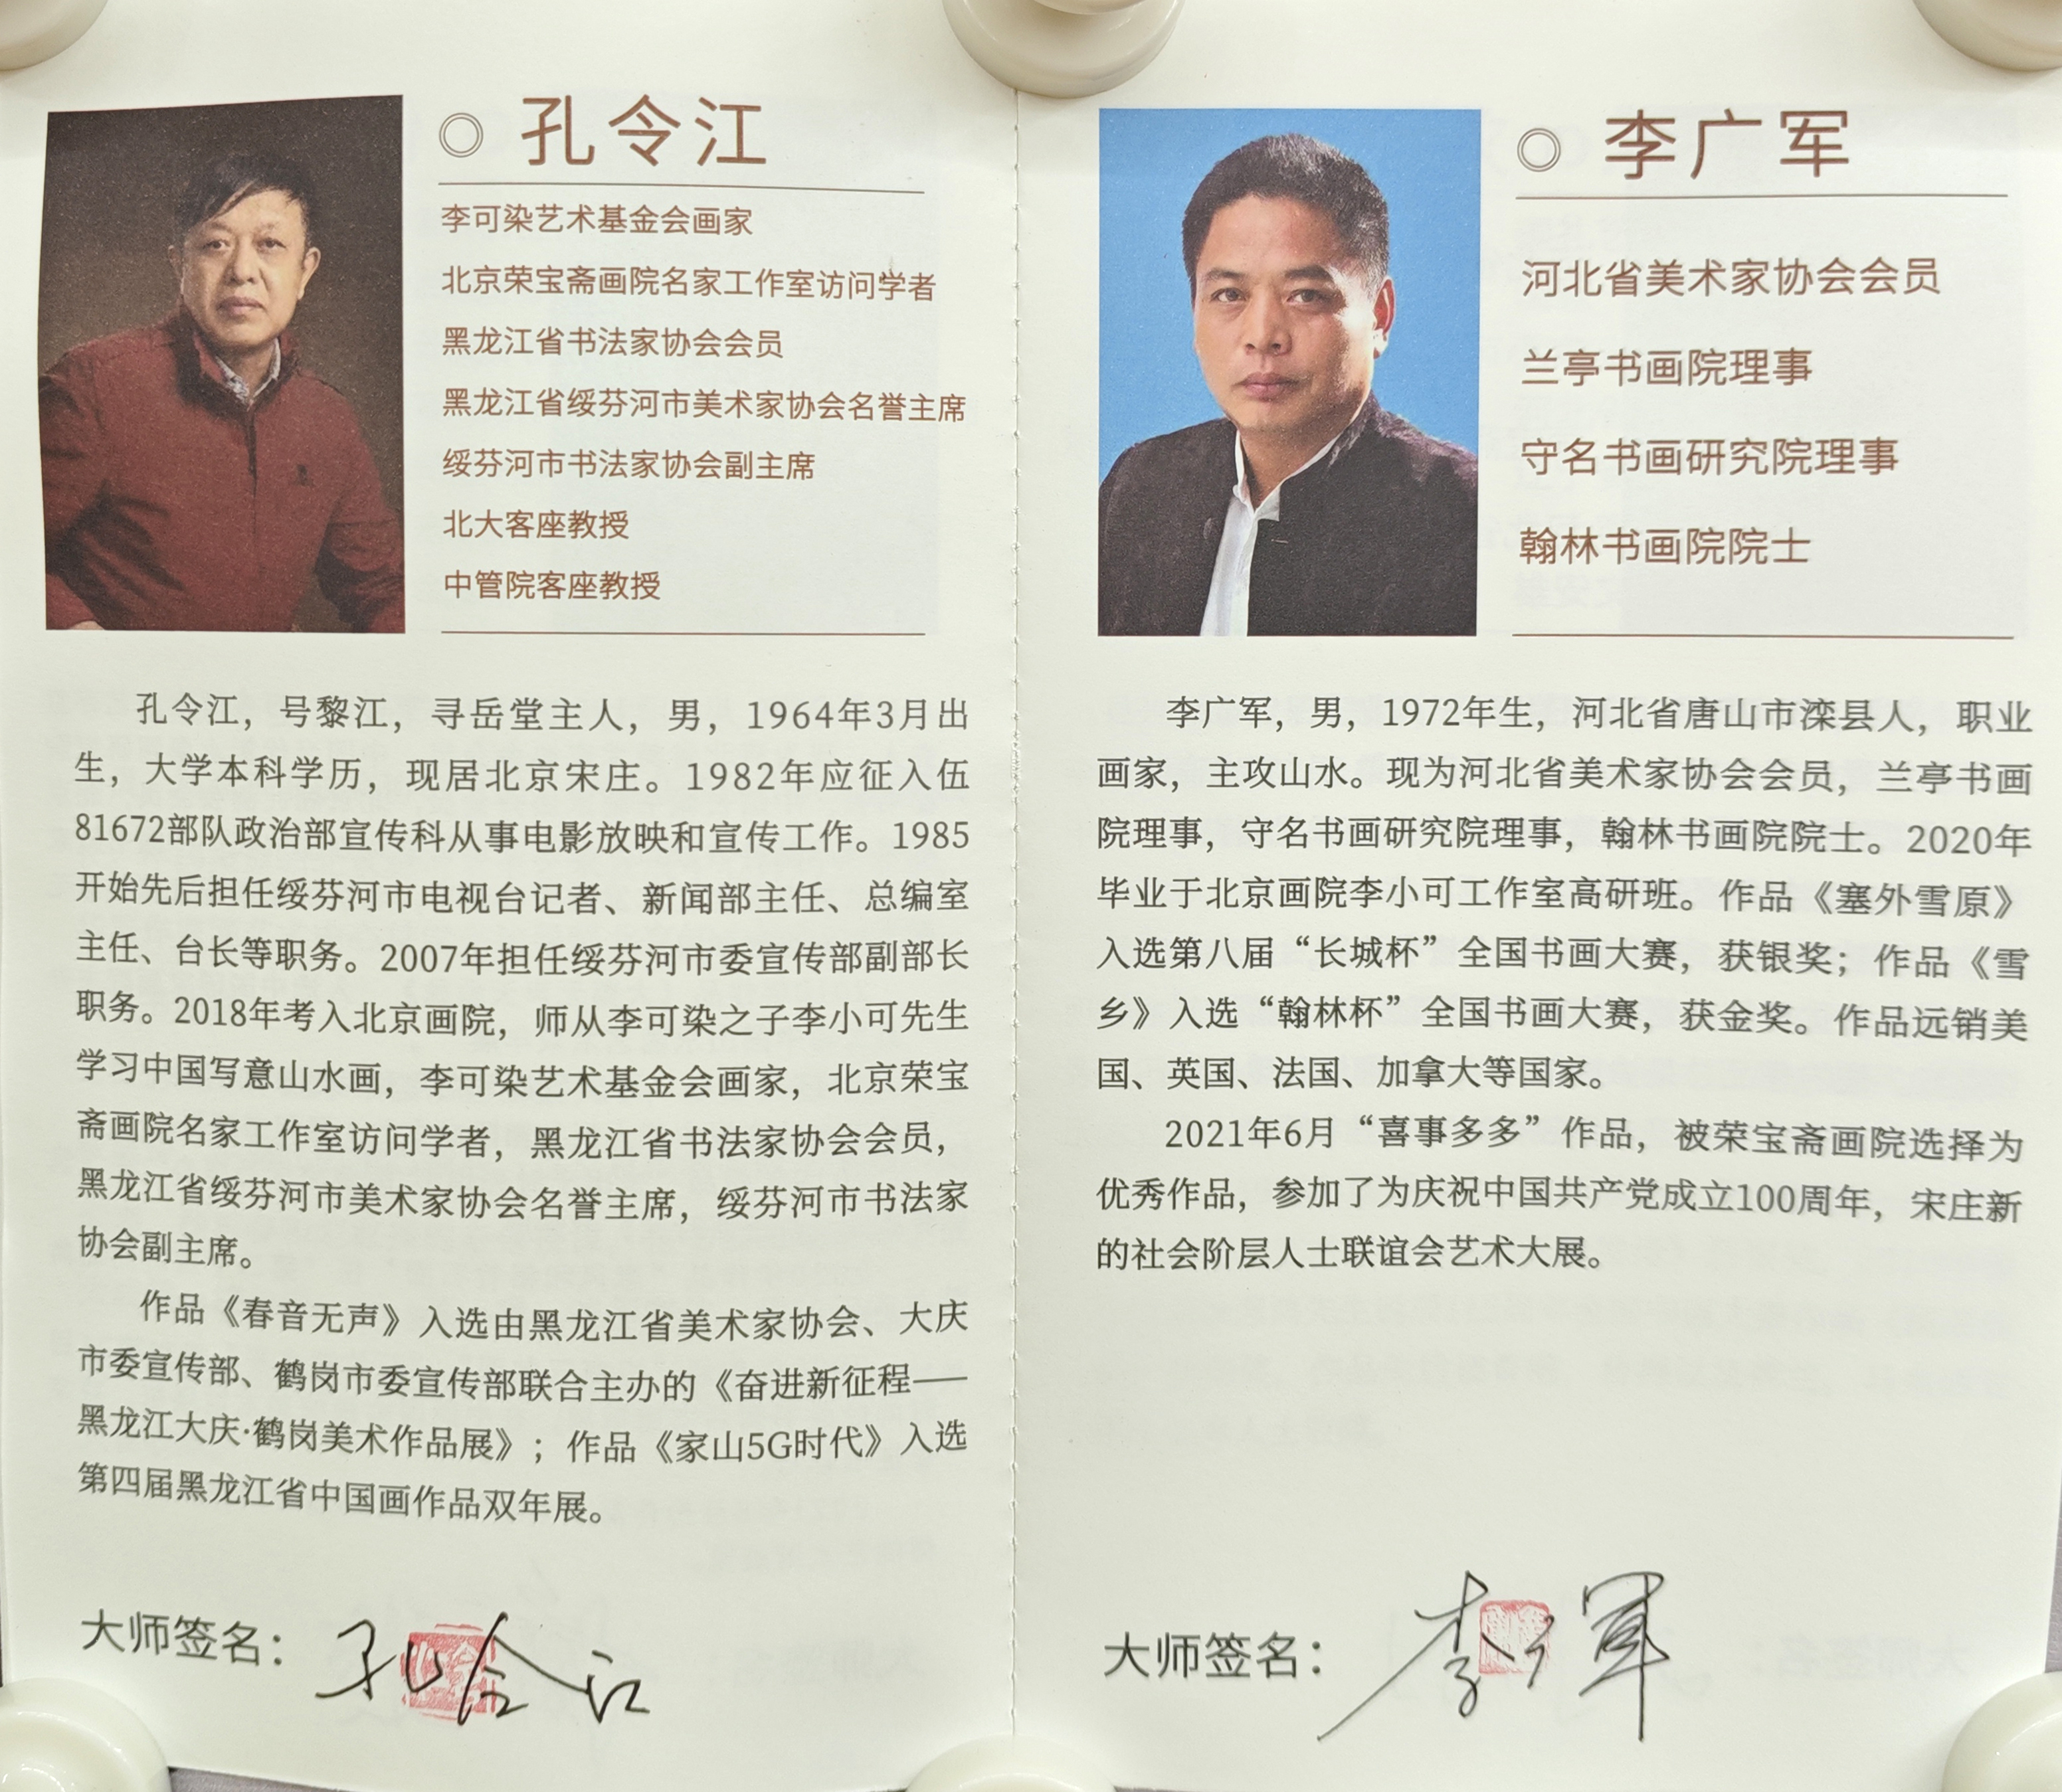 孔令江
李可染艺术基金会画家
北京荣宝斋画院名家工作室访问学者
黑龙江省书法家协会会员
黑龙江省绥芬河市美术家协会名誉主席
绥芬河市书法家协会副主席
北大客座教授
中管院客座教授
孔令江，号黎江，寻岳堂主人，男，1964年3月出
生，大学本科学历，现居北京宋庄。1982年应征入伍
81672部队政治部宣传科从事电影放映和宣传工作。1985
开始先后担任绥芬河市电视台记者、新闻部主任、总编室
主任、台长等职务。2007年担任绥芬河市委宣传部副部长
职务。2018年考入北京画院，师从李可染之子李小可先生
学习中国写意山水画，李可染艺术基金会画家，北京荣宝
斋画院名家工作室访问学者，黑龙江省书法家协会会员，
黑龙江省绥芬河市美术家协会名誉主席，绥芬河市书法家
协会副主席。
作品《春音无声》入选由黑龙江省美术家协会、大庆
市委宣传部、鹤岗市委宣传部联合主办的《奋进新征程——
黑龙江大庆·鹤岗美术作品展》；作品《家山5G时代》入选
第四届黑龙江省中国画作品双年展。
大师签名：孔令江
李广军
河北省美术家协会会员
兰亭书画院理事
守名书画研究院理事
翰林书画院院士
李广军，男，1972年生，河北省唐山市滦县人，职业
画家，主攻山水。现为河北省美术家协会会员，兰亭书画
院理事，守名书画研究院理事，翰林书画院院士。2020年
毕业于北京画院李小可工作室高研班。作品《塞外雪原》
入选第八届“长城杯”全国书画大赛，获银奖；作品《雪
乡》入选“翰林杯”全国书画大赛，获金奖。作品远销美
国、英国、法国、加拿大等国家。
2021年6月“喜事多多”作品，被荣宝斋画院选择为
优秀作品，参加了为庆祝中国共产党成立100周年，宋庄新
的社会阶层人士联谊会艺术大展。
大师签名：李广軍